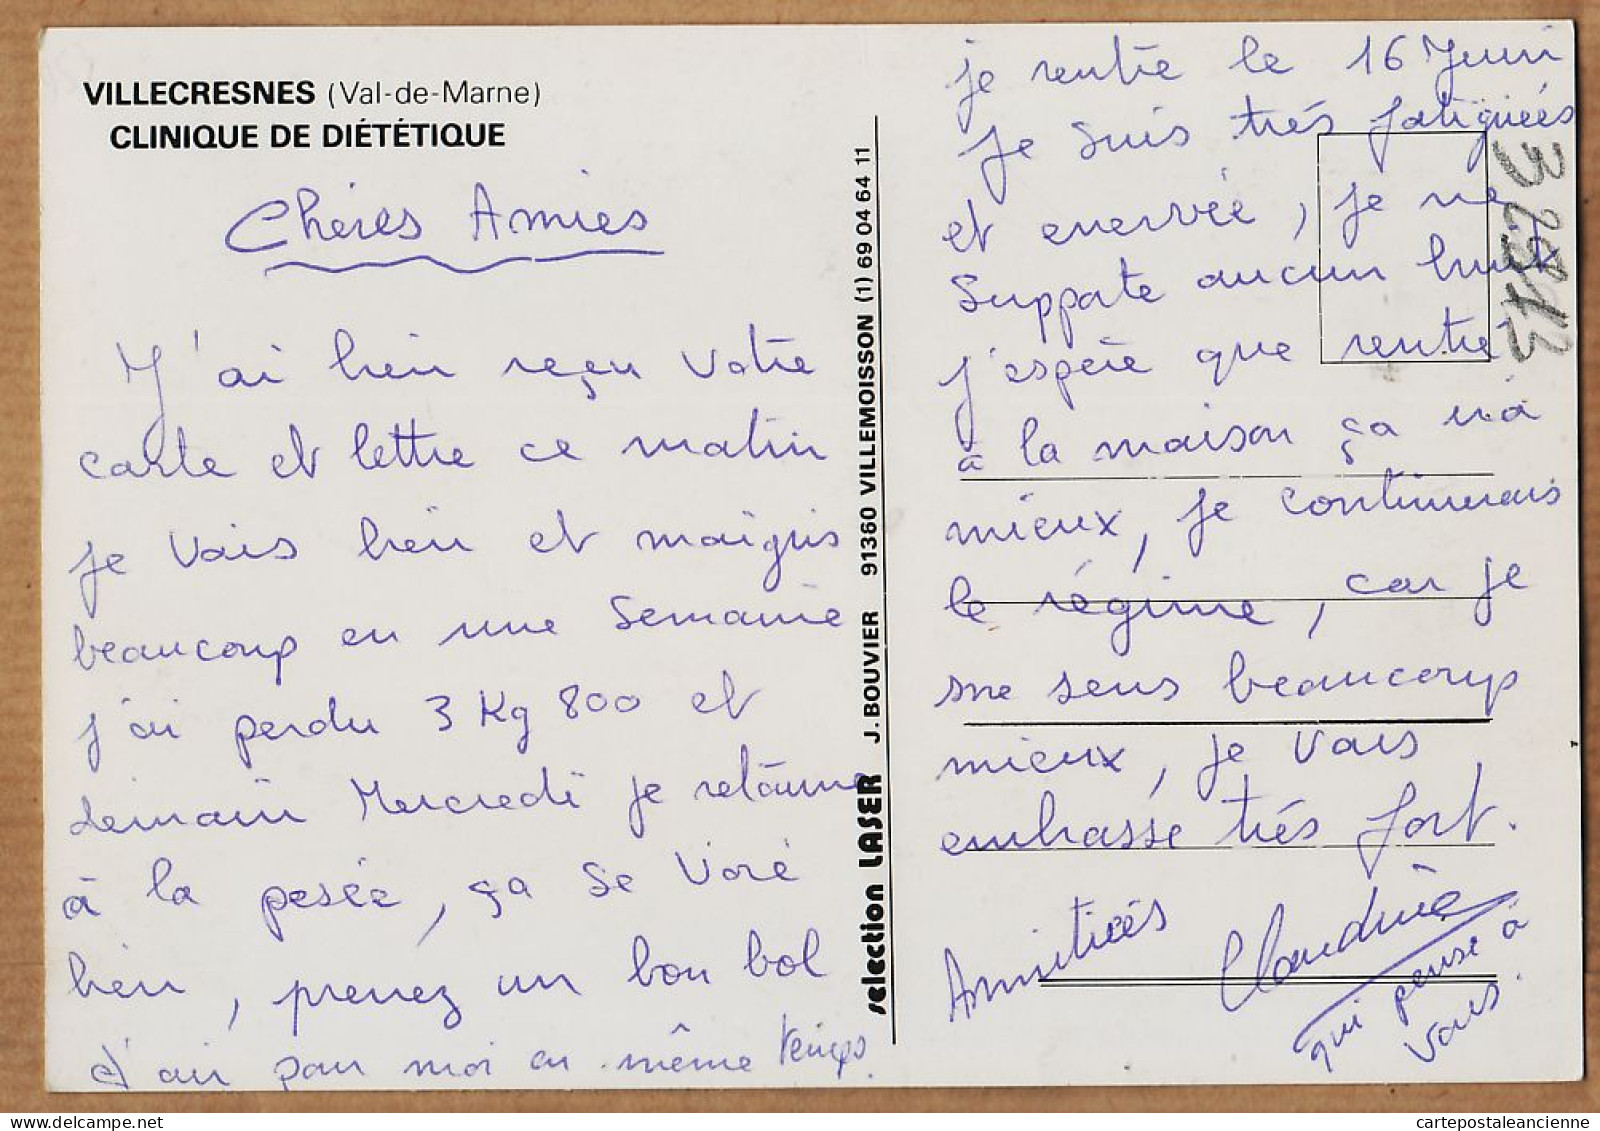 VILLECRESNES (Val-de-Marne)
CLINIQUE DE DIÉTÉTIQUE
Chères Amies
J'ai bien reçu Votre
carte et lettre ce matin
je Vais bien et maigris
beaucoup en une Semaine
j'ai perdu 3 Kg 800 et
demain Mercredi je retourne
à la pesée, ça se Voré
bien, prenez un bon bol
d'air pour moi en même temps.
selection LASER J. BOUVIER 91360 VILLEMOISSON (1) 69 04 64 11
je rentre le 16 Juin
Je suis très fatiguées
et enervée, je ne
Supporte aucun bruit
j'espère que rentré
à la maison ça và
mieux, je continuerais
le régime, car je
me sens beaucoup
mieux, je Vous
embrasse très fort.
Amitiées Claudine
qui pense à
vous.
cartepostaleancienne